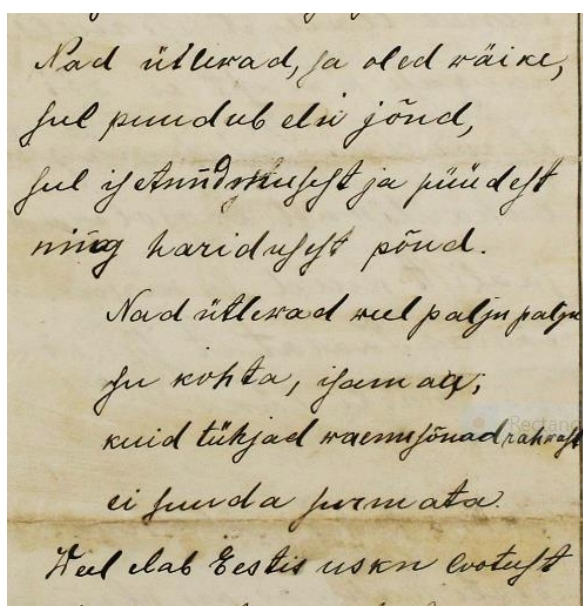 Nad ütlewad, sa oled wäike,
sul puudub elu jõud,
sul isetundmusest ja püüdest
ning haridusest põud.
Nad ütlewad weel palju palju
su kohta, isamaa;
kuid tühjad waenusõnad rahwast
ei suuda surmata.
Weel elab Eestis usku lootust